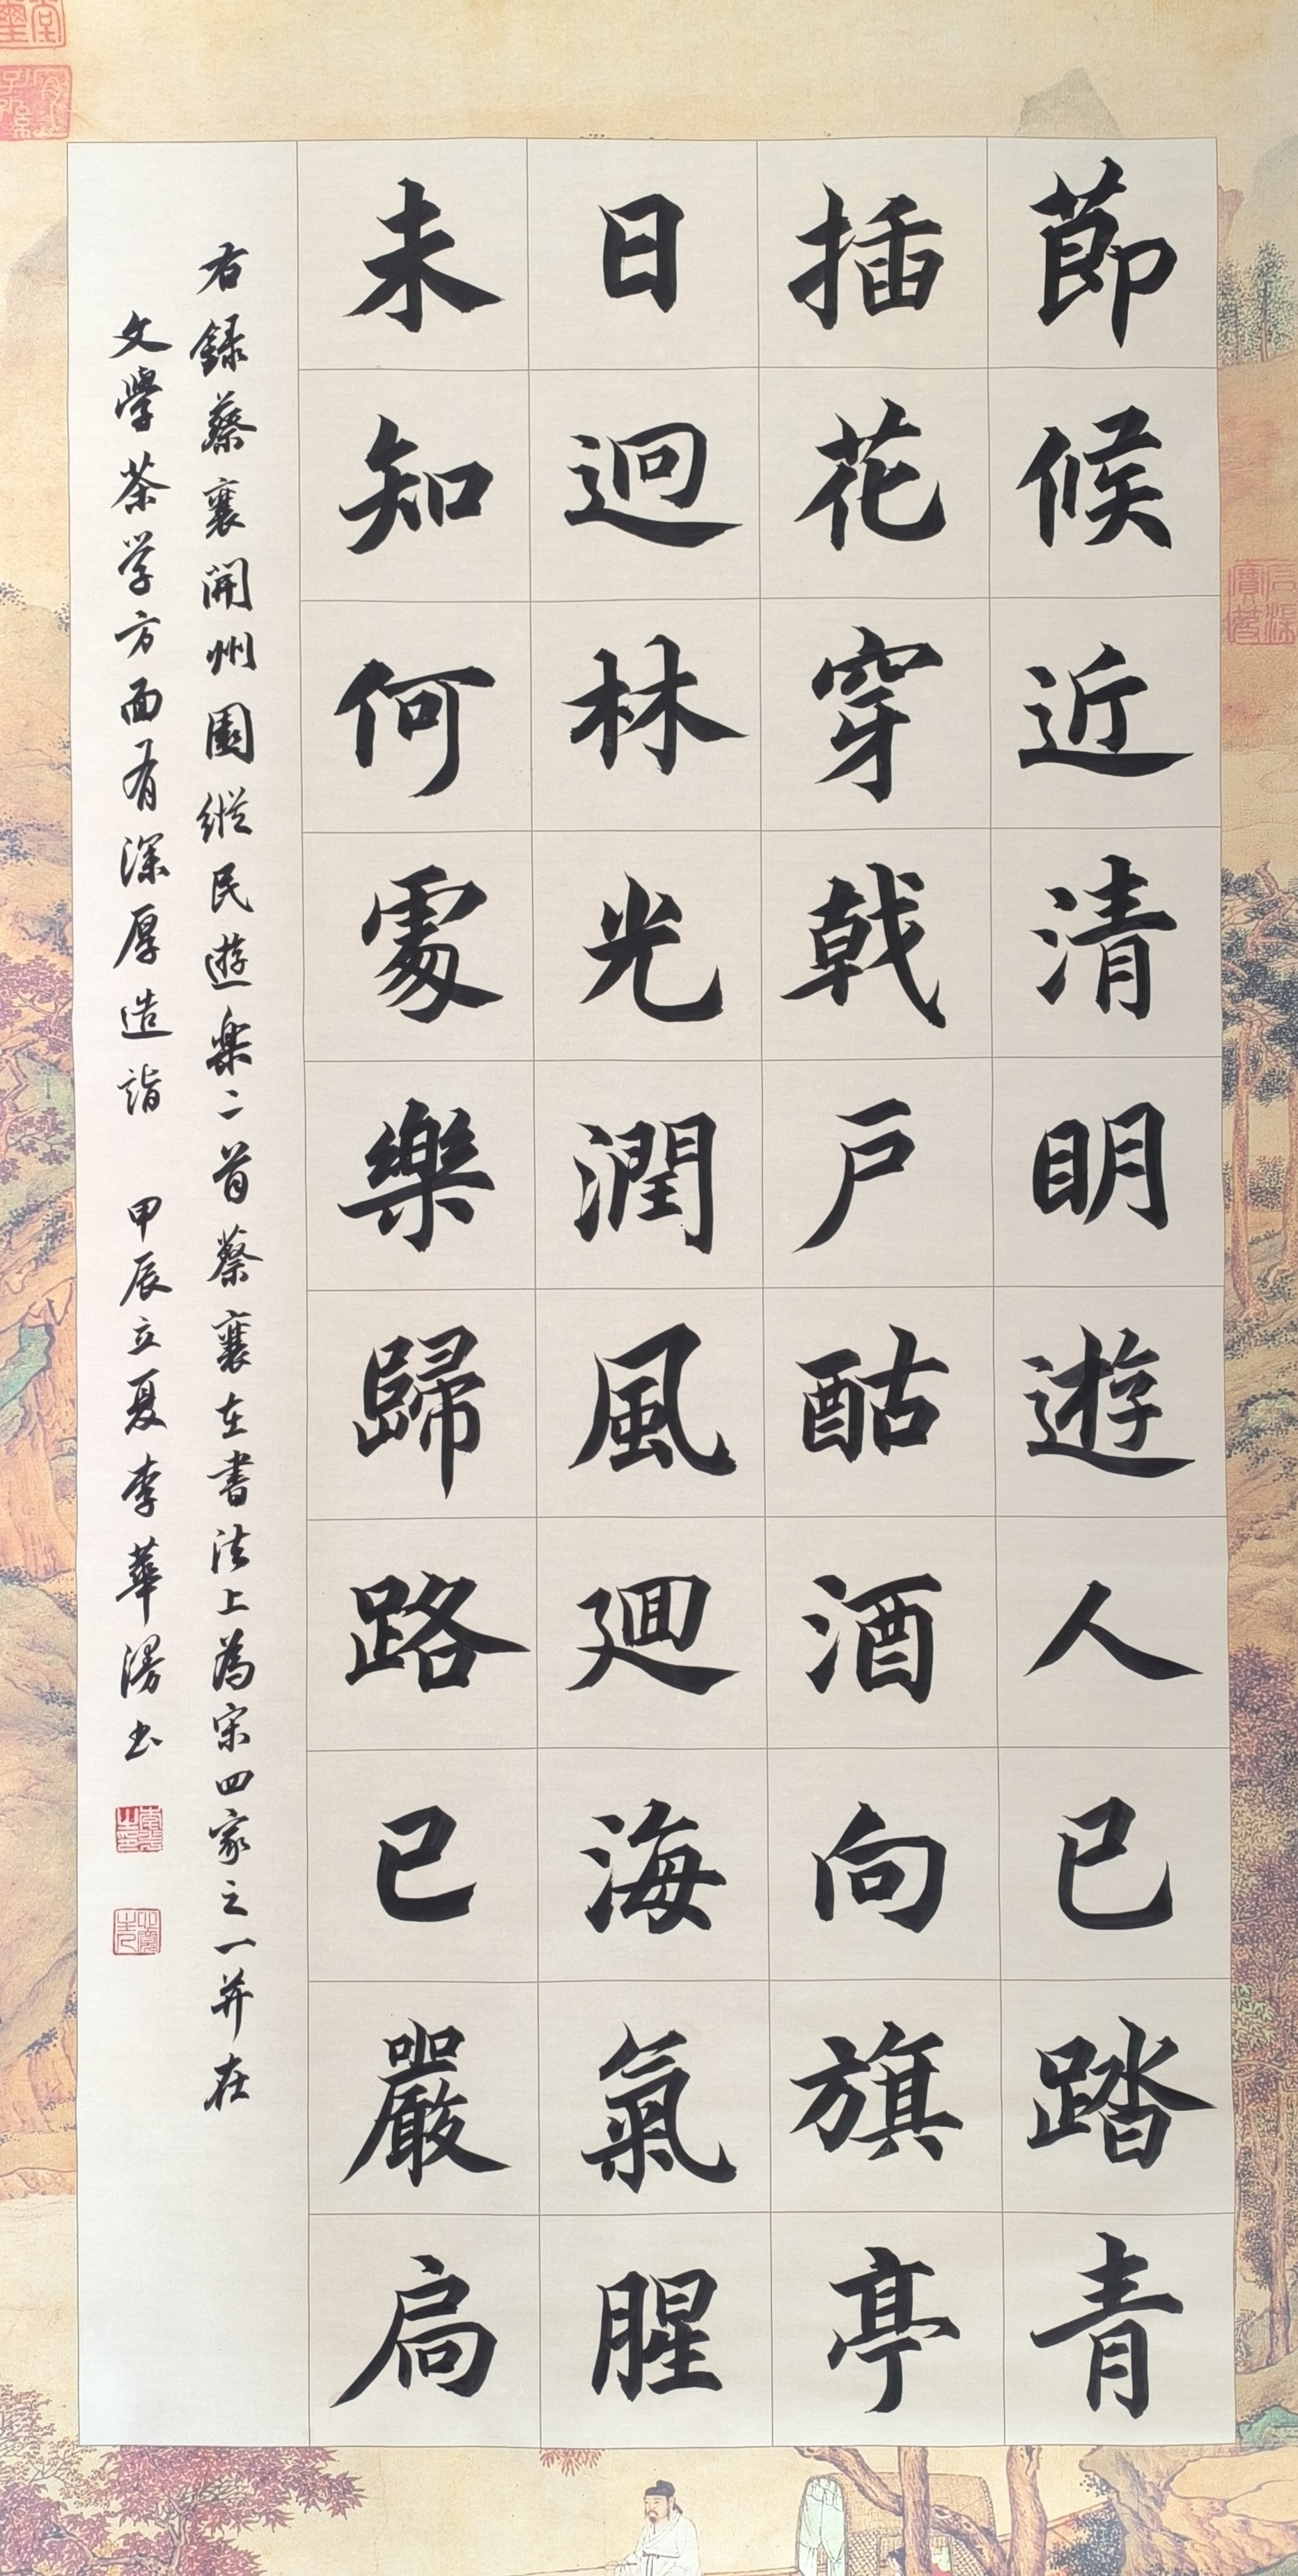 莭候近清明遊人已踏青
揷花穿戟戶酤酒向旗亭
日迥林光潤風廻海氣腥
未知何處樂歸路已嚴扃
右録蔡襄開州園縱民遊樂二首蔡襄在書法上為宋四家之一并在
文學茶学方面有深厚造詣 甲辰立夏李華湯书